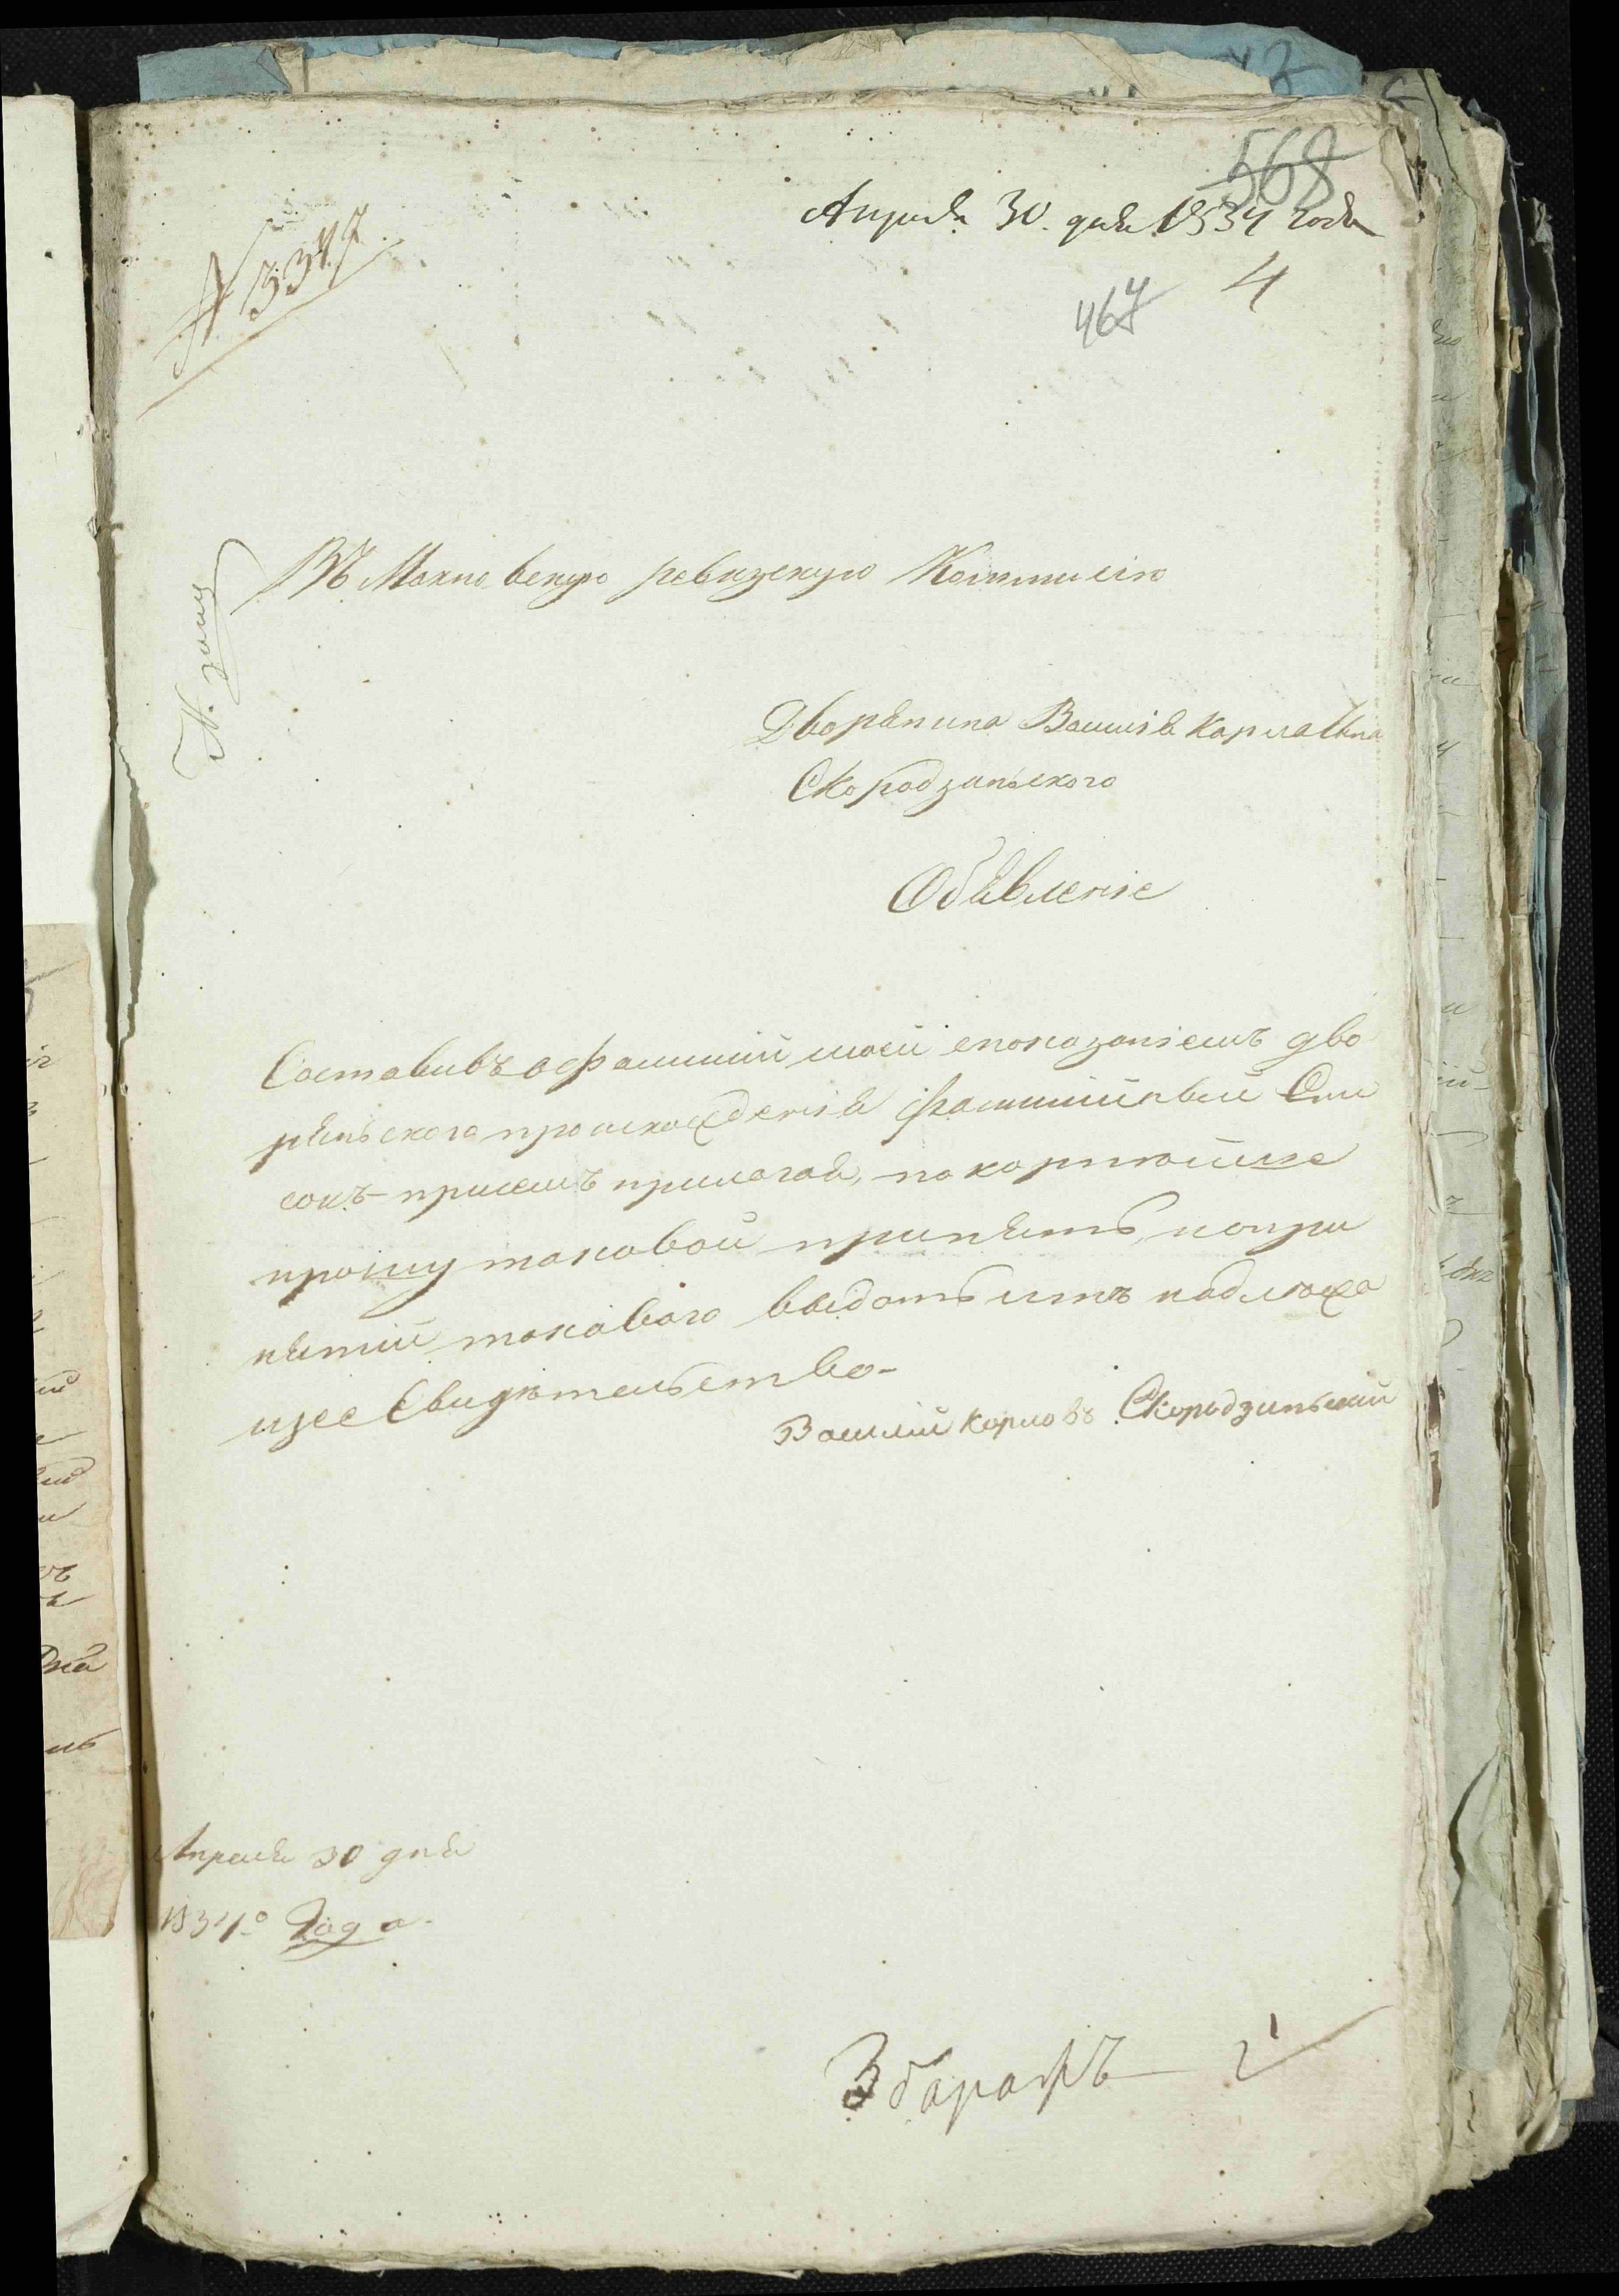 568
Апреля 30. дня 1834 года
№ 3347
467
4
Въ Махновскую ревизскую Коммисію
Дворянина Василія Карла Сына
Скородзиньского
Обявленіе
Составивъ о фамилии моей споказаніемъ дво
рянского происхожденія фамилійный Спи
сокъ присемъ прилагая, покорнюйше
прошу таковой принять, и опри
нятии таковаго выдать мнъ надлѣжа
щее Свидѣтельство-
Василий Карловъ Скородзинский
Апреля 30 дня
1834º Года.
Збаражъ